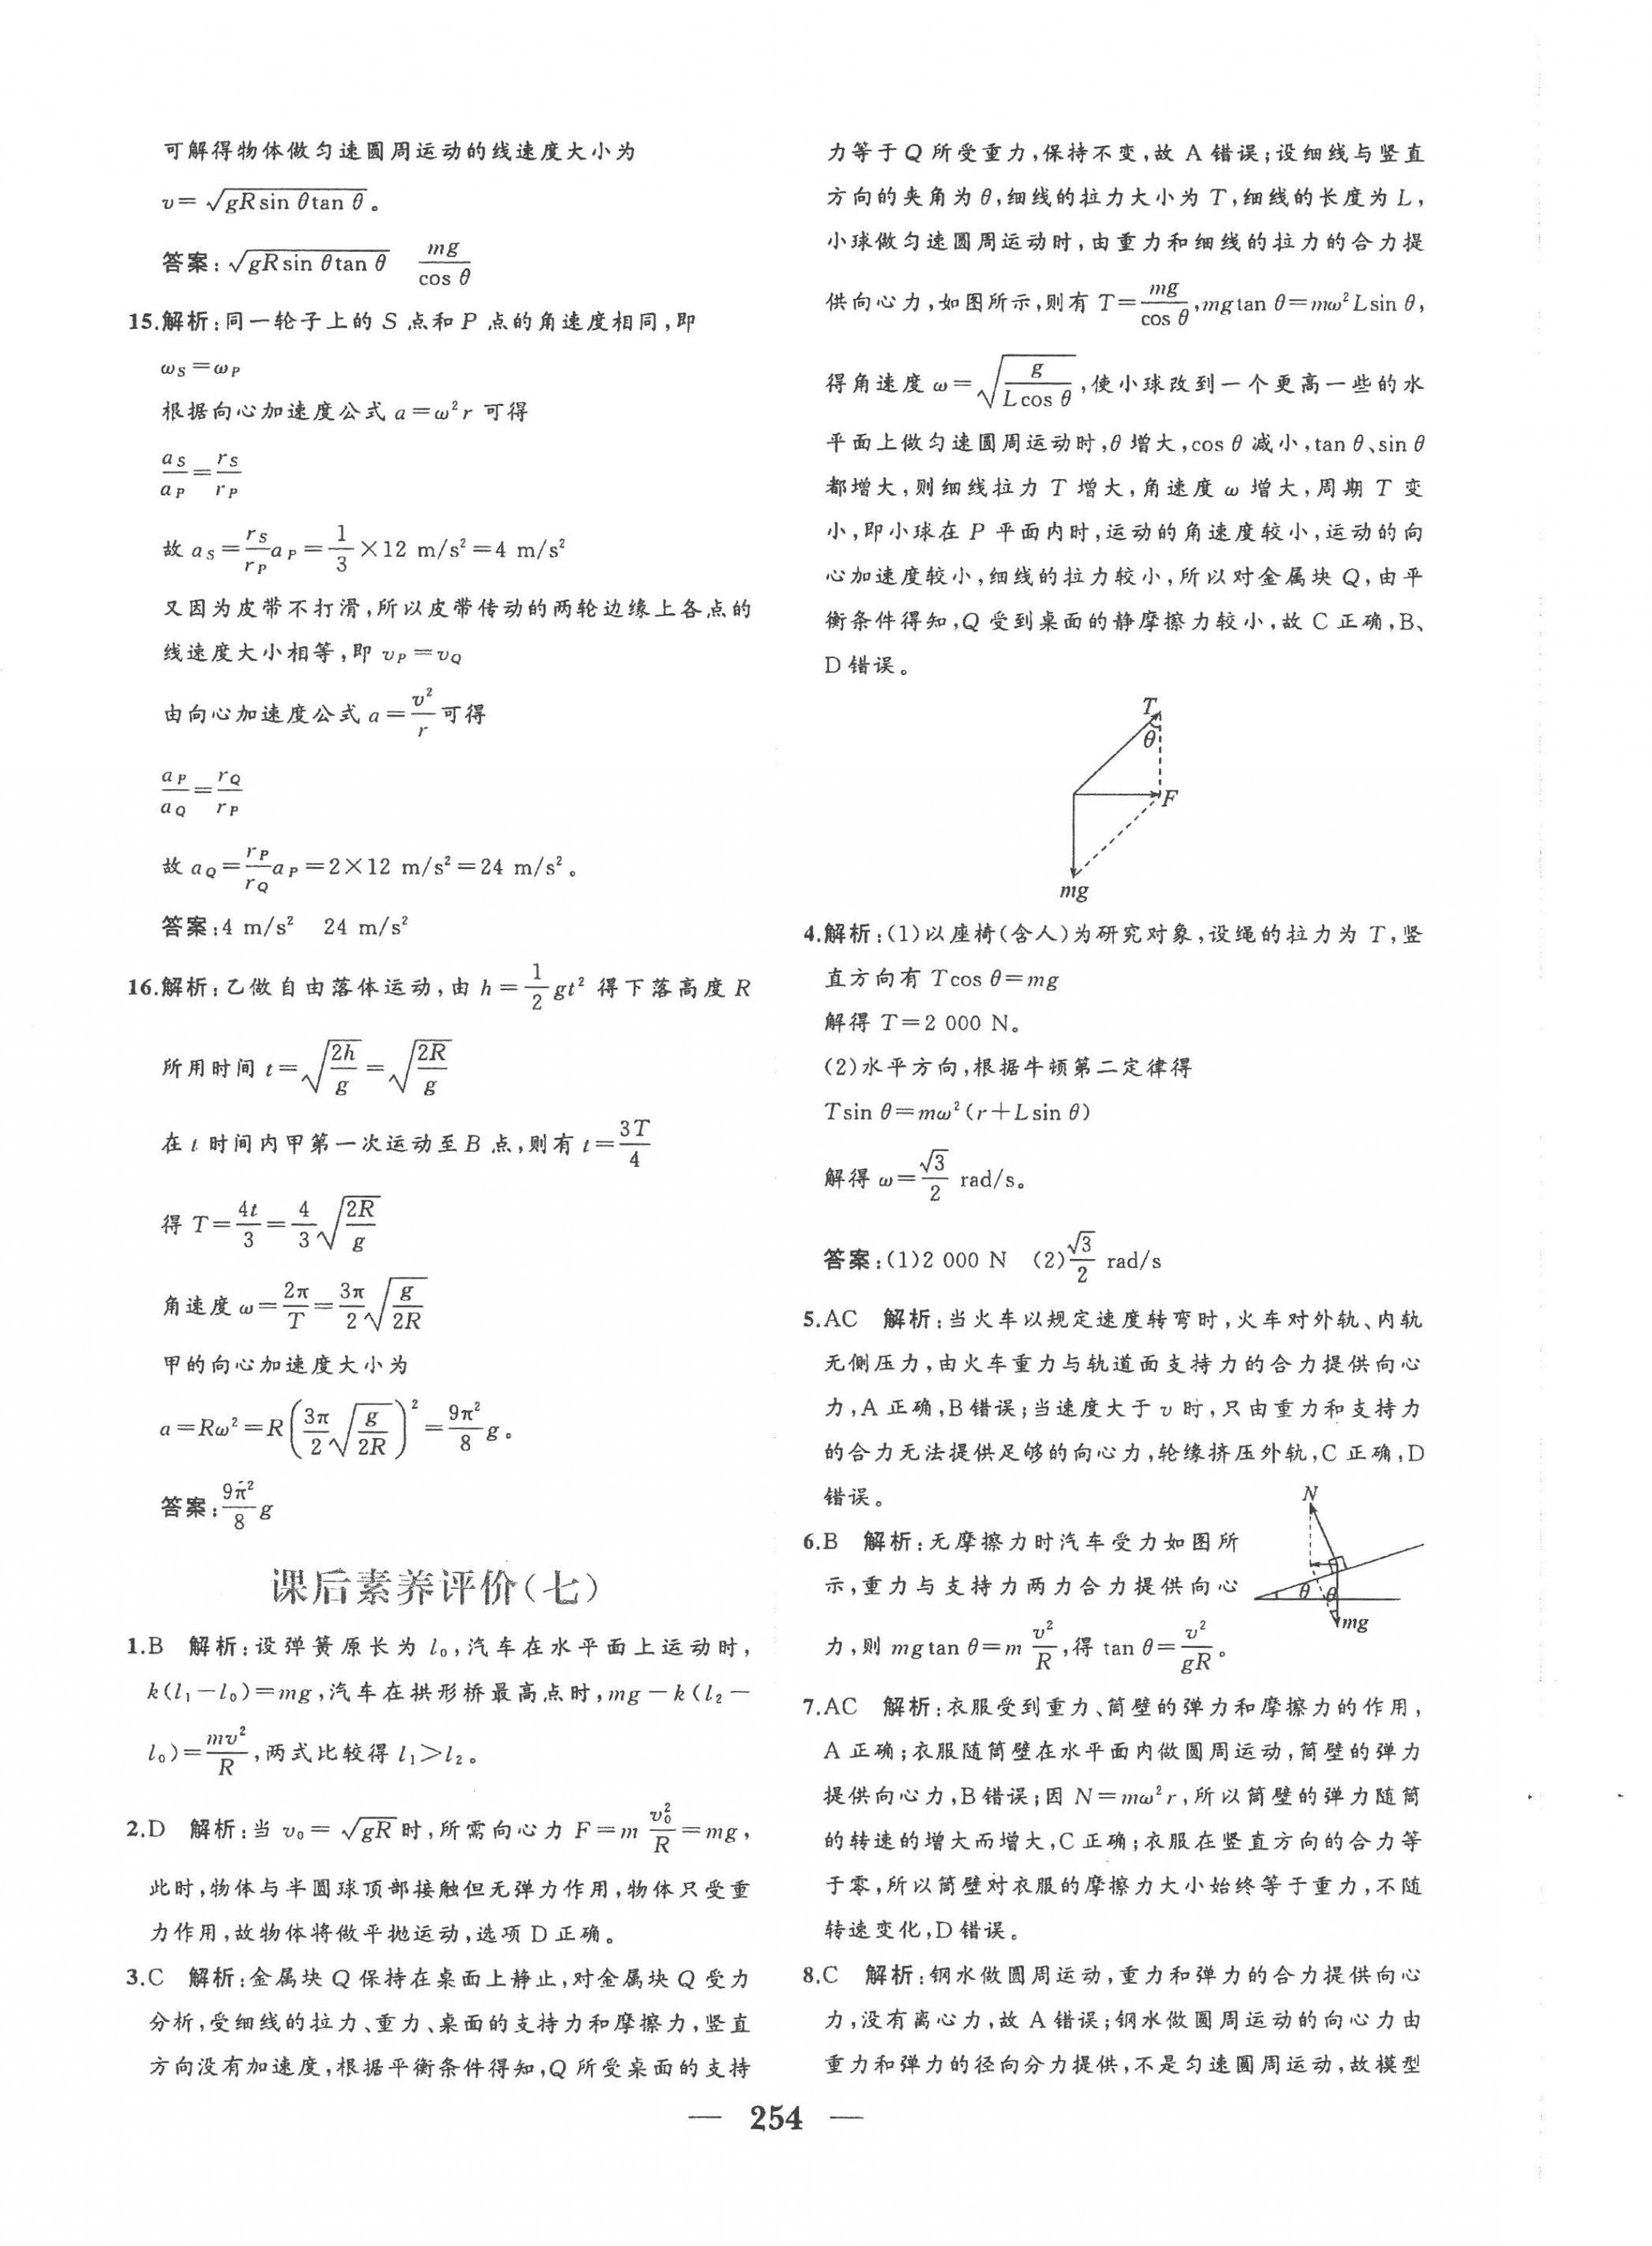 可解得物体做匀速圆周运动的线速度大小为
v=√(gRsin θtan θ)。
答案:√(gRsin θtan θ)　mg/cos θ
15.解析:同一轮子上的 S 点和 P 点的角速度相同,即
ω_S=ω_P
根据向心加速度公式 a=ω²r 可得
a_S/a_P=r_S/r_P
故 a_S=(r_S/r_P)a_P=1/3×12 m/s²=4 m/s²
又因为皮带不打滑,所以皮带传动的两轮边缘上各点的
线速度大小相等,即 v_P=v_Q
由向心加速度公式 a=v²/r 可得
a_P/a_Q=r_Q/r_P
故 a_Q=(r_P/r_Q)a_P=2×12 m/s²=24 m/s²。
答案:4 m/s²　24 m/s²
16.解析:乙做自由落体运动,由 h=1/2 gt² 得下落高度 R
所用时间 t=√(2h/g)=√(2R/g)
在 t 时间内甲第一次运动至 B 点,则有 t=3T/4
得 T=4t/3=4/3√(2R/g)
角速度 ω=2π/T=3π/2√(g/2R)
甲的向心加速度大小为
a=Rω²=R(3π/2√(g/2R))²=9π²/8 g。
答案:9π²/8 g
课后素养评价(七)
1.B　解析:设弹簧原长为 l₀,汽车在水平面上运动时,
k(l₁-l₀)=mg,汽车在拱形桥最高点时,mg-k(l₂-
l₀)=mv²/R,两式比较得 l₁>l₂。
2.D　解析:当 v₀=√(gR)时,所需向心力 F=m v₀²/R=mg,
此时,物体与半圆球顶部接触但无弹力作用,物体只受重
力作用,故物体将做平抛运动,选项 D 正确。
3.C　解析:金属块 Q 保持在桌面上静止,对金属块 Q 受力
分析,受细线的拉力、重力、桌面的支持力和摩擦力,竖直
方向没有加速度,根据平衡条件得知,Q 所受桌面的支持
力等于 Q 所受重力,保持不变,故 A 错误;设细线与竖直
方向的夹角为 θ,细线的拉力大小为 T,细线的长度为 L,
小球做匀速圆周运动时,由重力和细线的拉力的合力提
供向心力,如图所示,则有 T=mg/cos θ,mgtan θ=mω²Lsin θ,
得角速度 ω=√(g/(Lcos θ)),使小球改到一个更高一些的水
平面上做匀速圆周运动时,θ 增大,cos θ 减小,tan θ、sin θ
都增大,则细线拉力 T 增大,角速度 ω 增大,周期 T 变
小,即小球在 P 平面内时,运动的角速度较小,运动的向
心加速度较小,细线的拉力较小,所以对金属块 Q,由平
衡条件得知,Q 受到桌面的静摩擦力较小,故 C 正确,B、
D 错误。
T
θ
F
mg
4.解析:(1)以座椅(含人)为研究对象,设绳的拉力为 T,竖
直方向有 Tcos θ=mg
解得 T=2 000 N。
(2)水平方向,根据牛顿第二定律得
Tsin θ=mω²(r+Lsin θ)
解得 ω=√3/2 rad/s。
答案:(1)2 000 N　(2)√3/2 rad/s
5.AC　解析:当火车以规定速度转弯时,火车对外轨、内轨
无侧压力,由火车重力与轨道面支持力的合力提供向心
力,A 正确,B 错误;当速度大于 v 时,只由重力和支持力
的合力无法提供足够的向心力,轮缘挤压外轨,C 正确,D
错误。
6.B　解析:无摩擦力时汽车受力如图所
示,重力与支持力两力合力提供向心
力,则 mgtan θ=m v²/R,得 tan θ=v²/gR。
N
θ θ
mg
7.AC　解析:衣服受到重力、筒壁的弹力和摩擦力的作用,
A 正确;衣服随筒壁在水平面内做圆周运动,筒壁的弹力
提供向心力,B 错误;因 N=mω²r,所以筒壁的弹力随筒
的转速的增大而增大,C 正确;衣服在竖直方向的合力等
于零,所以筒壁对衣服的摩擦力大小始终等于重力,不随
转速变化,D 错误。
8.C　解析:钢水做圆周运动,重力和弹力的合力提供向心
力,没有离心力,故 A 错误;钢水做圆周运动的向心力由
重力和弹力的径向分力提供,不是匀速圆周运动,故模型
— 254 —